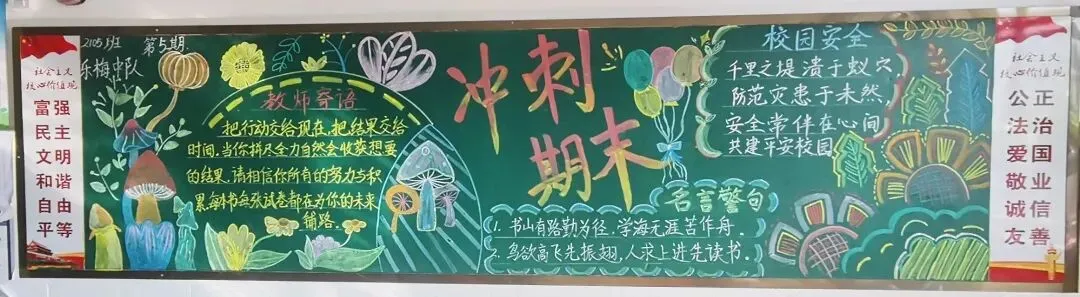 社会主义
核心价值观
富强
民主
文明
和谐
自由
平等
2105班 第5期
乐梅中队
教师寄语
把行动交给现在,把结果交给
时间.当你拼尽全力自然会收获想要
的结果.请相信你所有的努力与积
累.每本书每张试卷都在为你的未来
铺路.
冲刺
期末
校园安全
千里之堤溃于蚁穴,
防范灾患于未然,
安全常伴在心间
共建平安校园
名言警句
1. 书山有路勤为径.学海无涯苦作舟.
2. 鸟欲高飞先振翅,人求上进先读书.
社会主义
核心价值观
公正
法治
爱国
敬业
诚信
友善